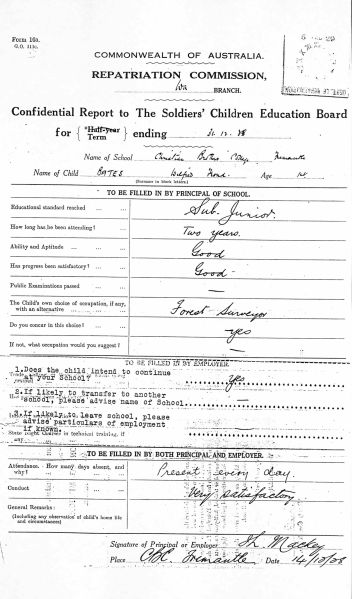 Form 16a.
COMMONWEALTH OF AUSTRALIA.
REPATRIATION COMMISSION,
WA BRANCH.
Confidential Report to The Soldiers' Children Education Board
for { *Half-year Term } ending 31.12.28
Name of School Christian Brothers College Fremantle
Name of Child BATES Wilfrid Age
(Surname in block letters)
TO BE FILLED IN BY PRINCIPAL OF SCHOOL.
Educational standard reached ... ... Sub. Junior.
How long has he been attending? ... ... Two years.
Ability and Aptitude ... ... Good
Has progress been satisfactory? ... ... Good -
Public Examinations passed ... ... —
The Child's own choice of occupation, if any, with an alternative ... ... Forest Surveyor
Do you concur in this choice? ... ... yes
If not, what occupation would you suggest? —
TO BE FILLED IN BY EMPLOYER
1. Does the child intend to continue
at your School? yes
2. If likely to transfer to another
school, please advise name of School —
3. If likely to leave school, please
advise particulars of employment
if known.
TO BE FILLED IN BY BOTH PRINCIPAL AND EMPLOYER.
Attendance. - How many days absent, and why? Present every day
Conduct Very satisfactory
General Remarks:
(Including any observation of child's home life and circumstances)
Signature of Principal or Employer Mackey
Place CBC. Fremantle Date 14/10/28